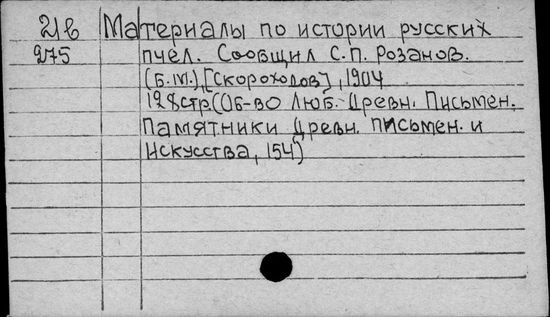 21в Материалы по истории русских
275 пчел. Сообщил С.П. Розанов.
(Б.м.) [Скороходов], 1904
128стр. (Об-во Люб. Древн. Письмен.
Памятники Древн. письмен. и
искусства, 154)